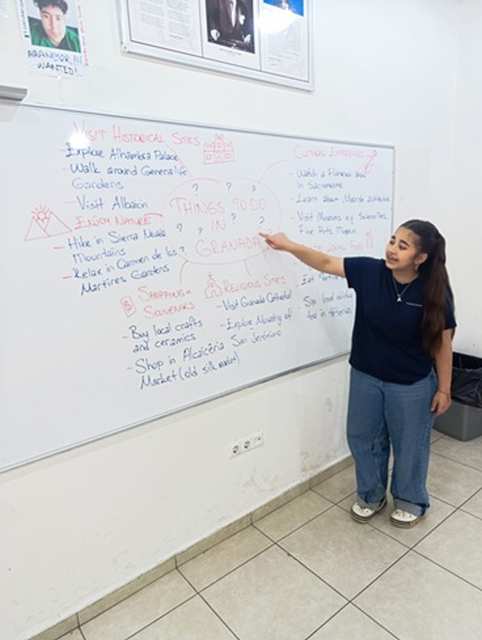 WANTED!
VISIT HISTORICAL SITES
- Explore Alhambra Palace
- Walk around Generalife
Gardens
- Visit Albaicín
ENJOY NATURE
- Hike in Sierra Nevada
Mountains
- Relax in Carmen de los
Martires Gardens
? ? ?
THINGS TO DO
? ? IN ? ?
GRANADA
?
SHOPPING &
SOUVENIRS
- Buy local crafts
and ceramics
- Shop in Alcaicería
Market (old silk market)
RELIGIOUS SITES
- Visit Granada Cathedral
- Explore Monastery of
San Jerónimo
- Watch a Flamenco show
in Sacromonte
- Learn about Moorish
- Visit Museums e.g. Science,
Fine Arts Museum
- Eat